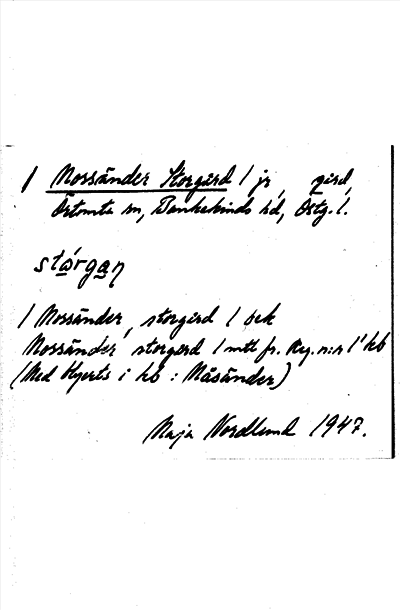 1 Mossänder Storgård 1 jr, gård,
Örtomta sn, Bankekinds hd, Östg. l.
stɑ́rgan
1 Mossänder, storgård 1 bek
Mossänder storgård 1 mtl fr. Reg. n:r 1' kb
(Med Hjerts i kb : Måsänder)
Maja Nordlund 1947.